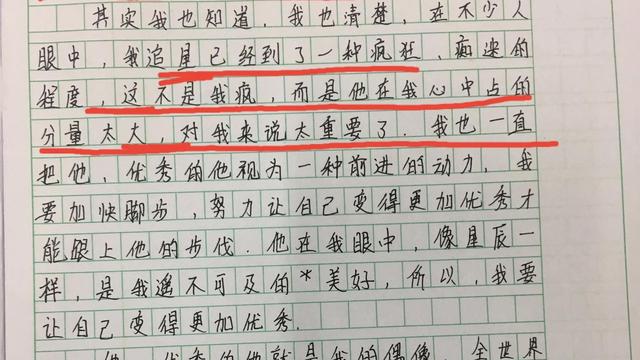 其实我也知道，我也清楚，在不少人
眼中，我追星已经到了一种疯狂、痴迷的
程度，这不是我疯，而是他在我心中占的
分量太大，对我来说太重要了．我也一直
把他，优秀的他视为一种前进的动力，我
要加快脚步，努力让自己变得更加优秀才
能跟上他的步伐．他在我眼中，像星辰一
样，是我遥不可及的*美好，所以，我要
让自己变得更加优秀．
他，优秀的他就是我的偶像，全世界